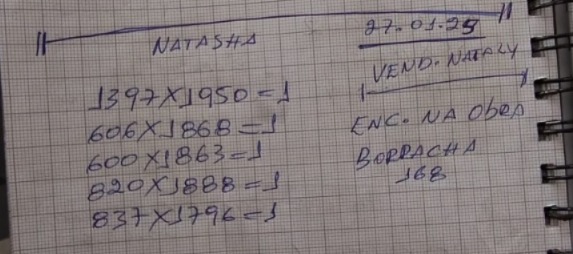 NATASHA
1397X1950=1
606X1868=1
600X1863=1
820X1888=1
837X1796=1
27.01.25
VEND. NATALY
ENC. NA ObRA
BORRACHA
168